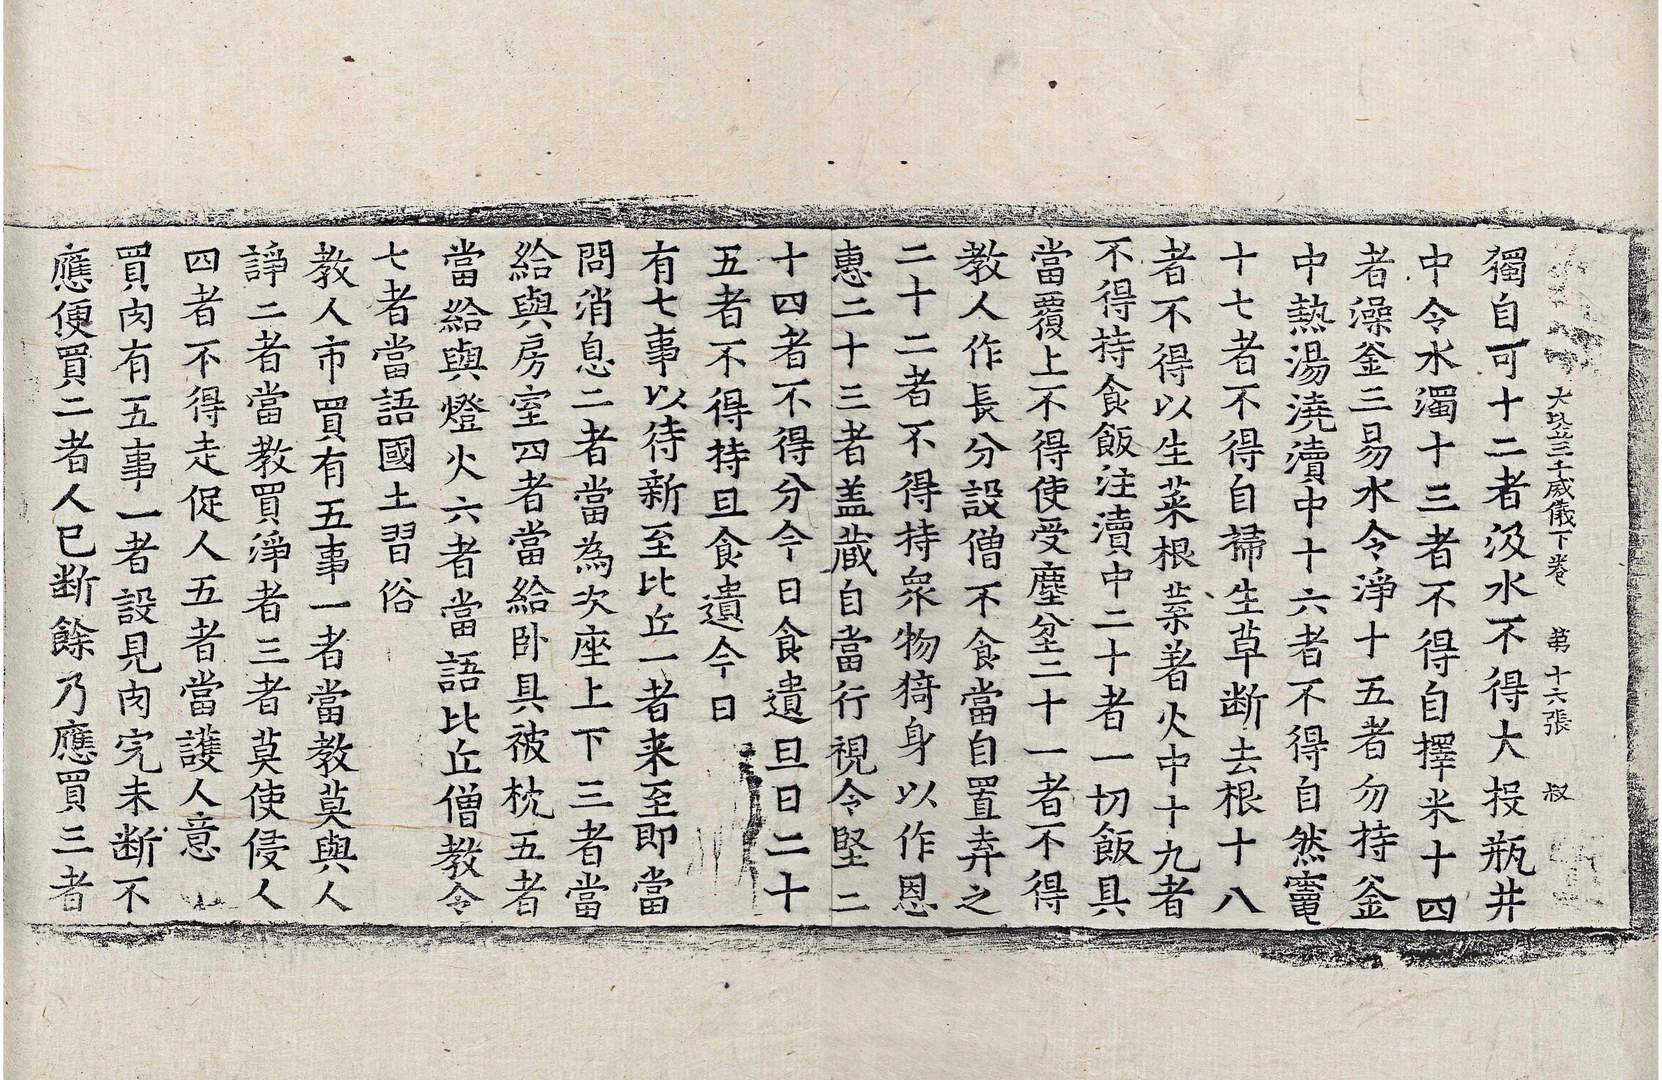 大比丘三千威儀下卷　第十六張　叔
獨自可十二者汲水不得大投瓶井
中令水濁十三者不得自擇米十四
者澡釜三易水令淨十五者勿持釜
中熱湯澆瀆中十六者不得自然竃
十七者不得自掃生草断去根十八
者不得以生菜根葉著火中十九者
不得持食飯注瀆中二十者一切飯具
當覆上不得使受塵坌二十一者不得
教人作長分設僧不食當自置弃之
二十二者不得持衆物猗身以作恩
惠二十三者盖蔵自當行視令堅二
十四者不得分今日食遺旦日二十
五者不得持旦食遺今日
有七事以待新至比丘一者来至即當
問消息二者當為次座上下三者當
給與房室四者當給卧具被枕五者
當給與燈火六者當語比丘僧教令
七者當語國土習俗
教人市買有五事一者當教莫與人
諍二者當教買淨者三者莫使侵人
四者不得走促人五者當護人意
買肉有五事一者設見肉完未断不
應便買二者人已断餘乃應買三者